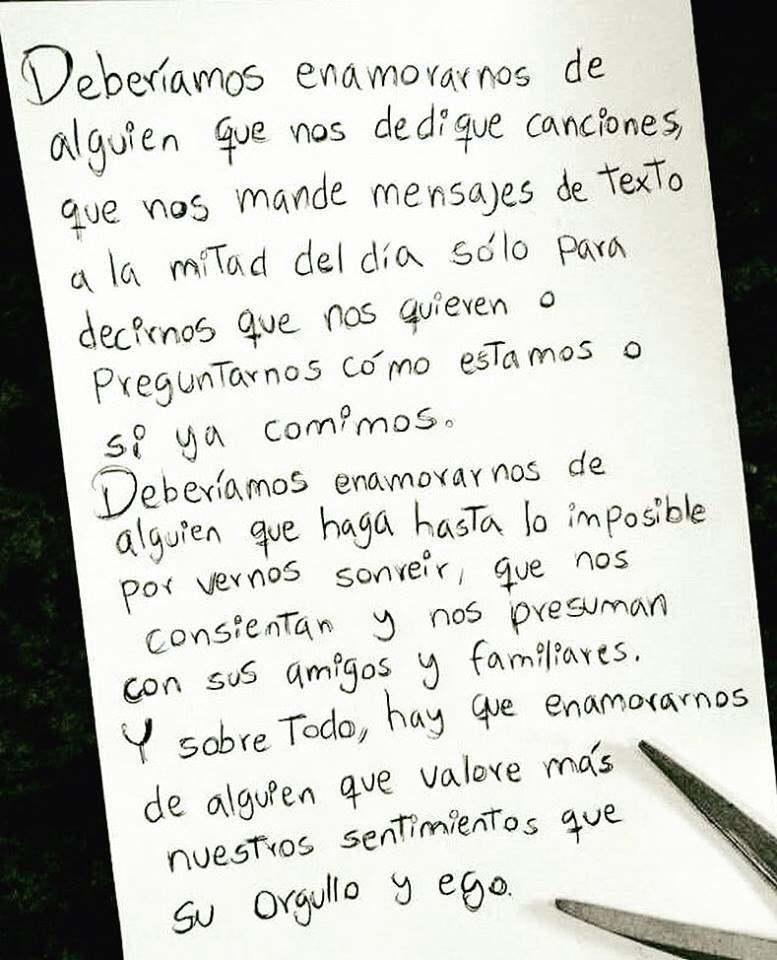 Deberíamos enamorarnos de
alguien que nos dedique canciones,
que nos mande mensajes de texto
a la mitad del día sólo para
decirnos que nos quieren o
Preguntarnos cómo estamos o
si ya comimos.
Deberíamos enamorarnos de
alguien que haga hasta lo imposible
por vernos sonreir, que nos
consientan y nos presuman
con sus amigos y familiares.
Y sobre Todo, hay que enamorarnos
de alguien que valore más
nuestros sentimientos que
su orgullo y ego.